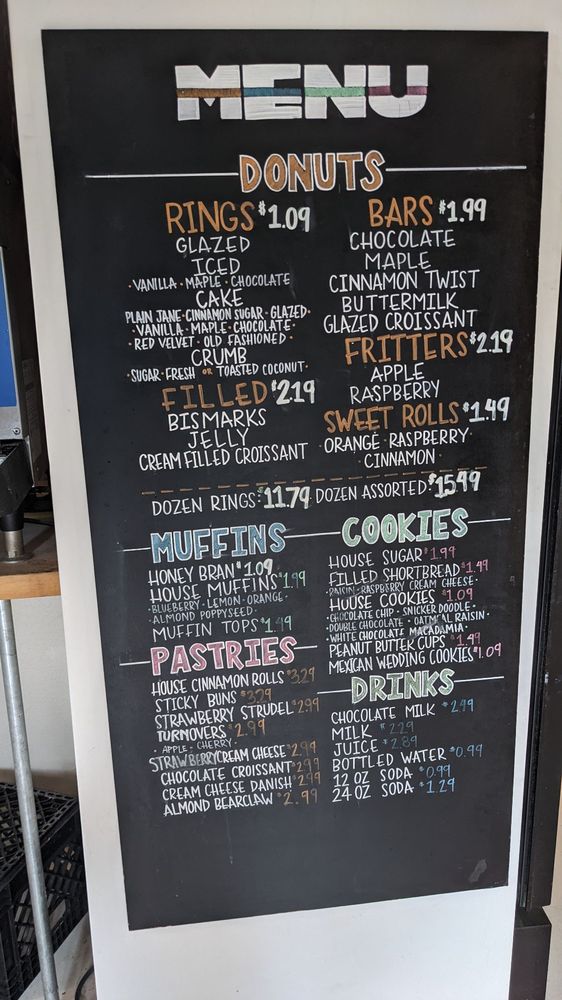 MENU
DONUTS
RINGS $1.09
GLAZED
ICED
· VANILLA · MAPLE · CHOCOLATE
CAKE
PLAIN JANE · CINNAMON SUGAR · GLAZED ·
· VANILLA · MAPLE · CHOCOLATE ·
· RED VELVET · OLD FASHIONED ·
CRUMB
· SUGAR · FRESH OR TOASTED COCONUT ·
FILLED $2.19
BISMARKS
JELLY
CREAM FILLED CROISSANT
BARS $1.99
CHOCOLATE
MAPLE
CINNAMON TWIST
BUTTERMILK
GLAZED CROISSANT
FRITTERS $2.19
APPLE
RASPBERRY
SWEET ROLLS $1.49
· ORANGE · RASPBERRY ·
· CINNAMON ·
DOZEN RINGS: $11.79 DOZEN ASSORTED: $15.49
MUFFINS
HONEY BRAN $1.09
HOUSE MUFFINS $1.99
· BLUEBERRY · LEMON · ORANGE ·
· ALMOND POPPYSEED ·
MUFFIN TOPS $1.49
PASTRIES
HOUSE CINNAMON ROLLS $3.29
STICKY BUNS $3.29
STRAWBERRY STRUDEL $2.99
TURNOVERS $2.99
· APPLE · CHERRY ·
STRAWBERRY CREAM CHEESE $2.99
CHOCOLATE CROISSANT $2.99
CREAM CHEESE DANISH $2.99
ALMOND BEARCLAW $2.99
COOKIES
HOUSE SUGAR $1.99
FILLED SHORTBREAD $1.49
· RAISIN · RASPBERRY CREAM CHEESE ·
HOUSE COOKIES $1.09
· CHOCOLATE CHIP · SNICKERDOODLE ·
· DOUBLE CHOCOLATE · OATMEAL RAISIN ·
· WHITE CHOCOLATE MACADAMIA ·
PEANUT BUTTER CUPS $1.49
MEXICAN WEDDING COOKIES $1.09
DRINKS
CHOCOLATE MILK $2.49
MILK $2.29
JUICE $2.89
BOTTLED WATER $0.99
12 OZ SODA $0.99
24 OZ SODA $1.29